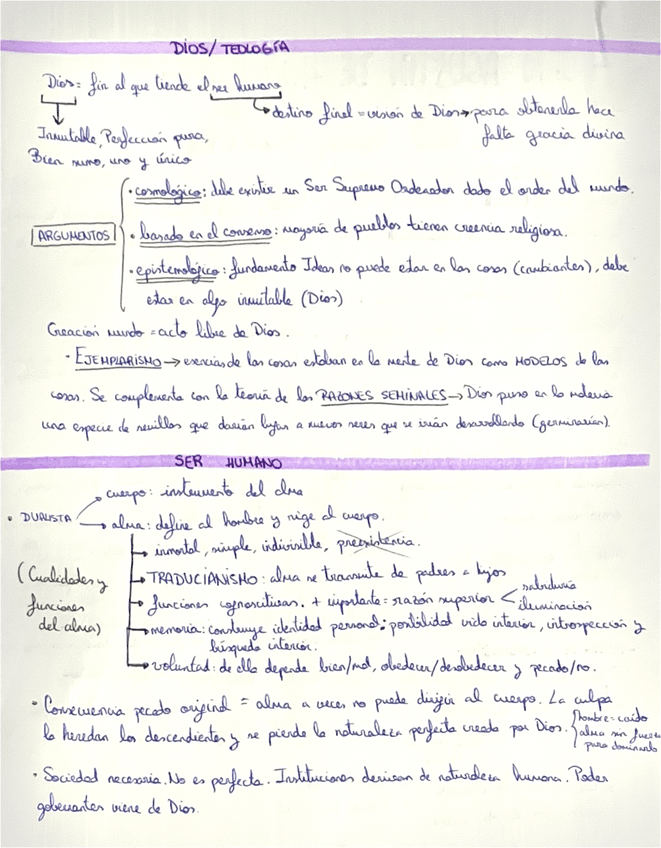 DIOS/TEOLOGÍA
Dios = fin al que tiende el ser humano
destino final = visión de Dios → para obtenerla hace
Inmutable, Perfección pura,
falta gracia divina
Bien sumo, uno y único
• cosmológico: debe existir un Ser Supremo Ordenador dado el orden del mundo.
ARGUMENTOS
• basado en el consenso: mayoría de pueblos tienen creencia religiosa.
• epistemológico: fundamento Ideas no puede estar en las cosas (cambiantes), debe
estar en algo inmutable (Dios)
Creación mundo = acto libre de Dios.
• EJEMPLARISMO → esencias de las cosas estaban en la mente de Dios como MODELOS de las
cosas. Se complementa con la teoría de las RAZONES SEMINALES → Dios puso en la materia
una especie de semillas que darían lugar a nuevos seres que se irían desarrollando (germinarían).
SER HUMANO
cuerpo: instrumento del alma
• DUALISTA
→ alma: define al hombre y rige al cuerpo.
→ inmortal, simple, indivisible, preexistencia.
(Cualidades y
funciones
del alma)
→ TRADUCIANISMO: alma se transmite de padres a hijos
→ funciones cognoscitivas. + importante = razón superior
sabiduría
iluminación
→ memoria: construye identidad personal: posibilidad vida interior, introspección y
búsqueda interior.
→ voluntad: de ella depende bien/mal, obedecer/desobedecer y pecado/no.
• Consecuencia pecado original = alma a veces no puede dirigir al cuerpo. La culpa
la heredan los descendientes y se pierde la naturaleza perfecta creada por Dios.
hombre = caído
alma sin fuerza
para dominarlo
• Sociedad necesaria. No es perfecta. Instituciones derivan de naturaleza humana. Poder
gobernantes viene de Dios.